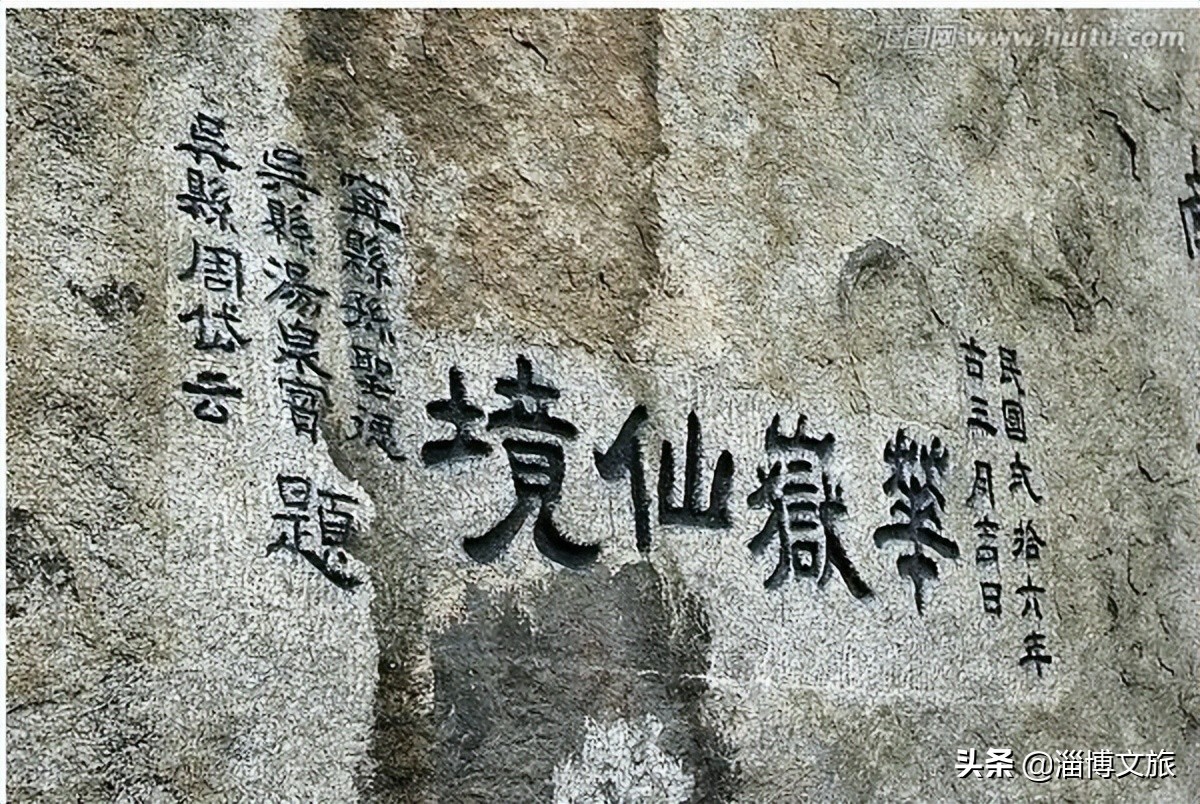 民國弍拾六年
古三月吉日
華嶽仙境
縣孫聖
吳縣湯
題
縣周
汇图网 www.huitu.com
头条 @淄博文旅